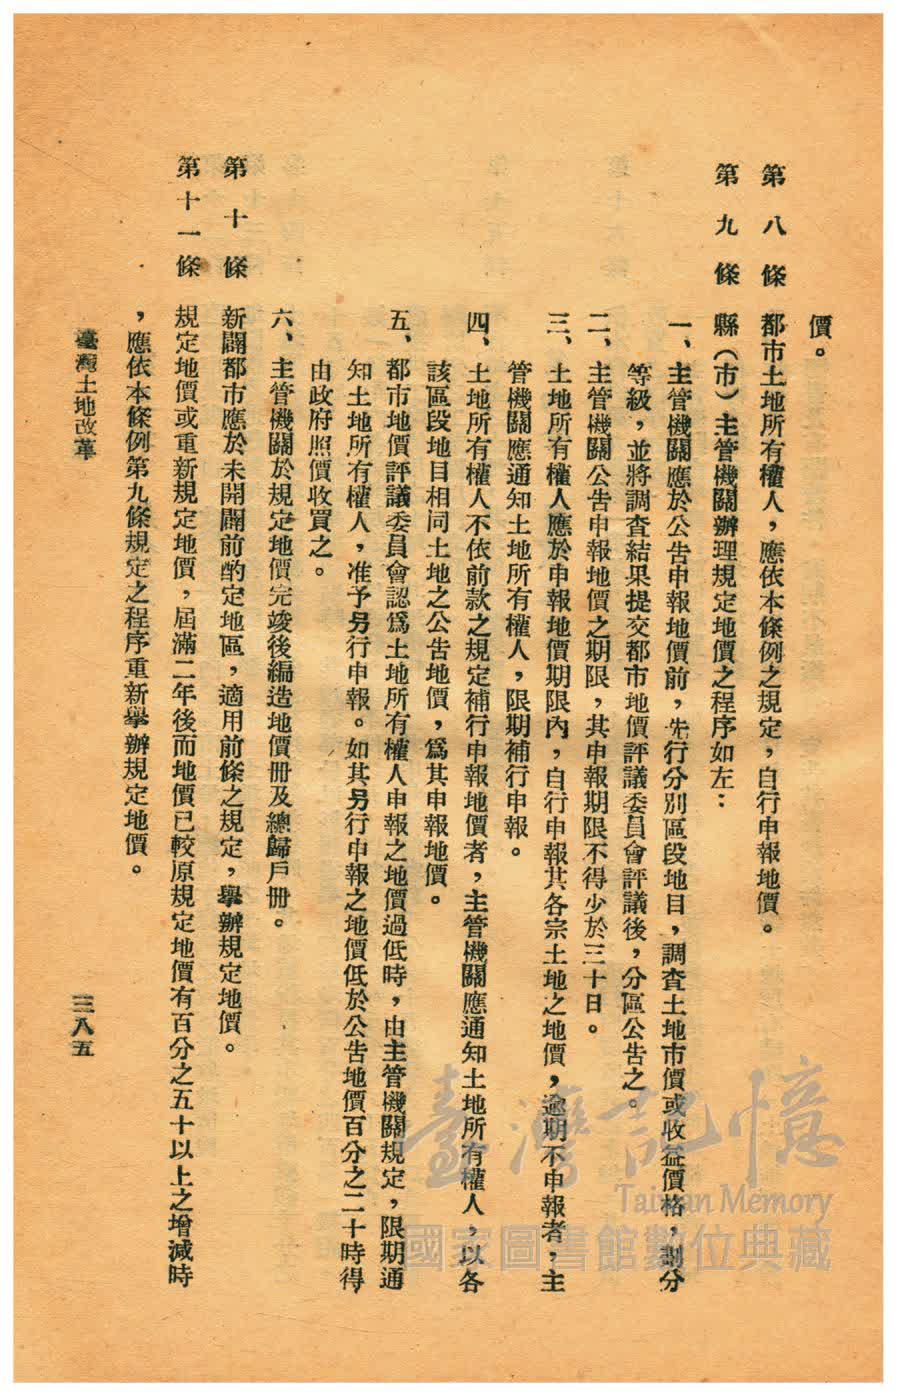 價。
第八條　都市土地所有權人，應依本條例之規定，自行申報地價。
第九條　縣（市）主管機關辦理規定地價之程序如左：
一、主管機關應於公告申報地價前，先行分別區段地目，調查土地市價或收益價格，劃分
等級，並將調查結果提交都市地價評議委員會評議後，分區公告之。
二、主管機關公告申報地價之期限，其申報期限不得少於三十日。
三、土地所有權人應於申報地價期限內，自行申報其各宗土地之地價，逾期不申報者，主
管機關應通知土地所有權人，限期補行申報。
四、土地所有權人不依前款之規定補行申報地價者，主管機關應通知土地所有權人，以各
該區段地目相同土地之公告地價，爲其申報地價。
五、都市地價評議委員會認爲土地所有權人申報之地價過低時，由主管機關規定，限期通
知土地所有權人，准予另行申報。如其另行申報之地價低於公告地價百分之二十時得
由政府照價收買之。
六、主管機關於規定地價完竣後編造地價冊及總歸戶冊。
第十條　新闢都市應於未開闢前酌定地區，適用前條之規定，舉辦規定地價。
第十一條　規定地價或重新規定地價，屆滿二年後而地價已較原規定地價有百分之五十以上之增減時
，應依本條例第九條規定之程序重新舉辦規定地價。
臺灣土地改革
三八五
臺灣記憶
Taiwan Memory
國家圖書館數位典藏